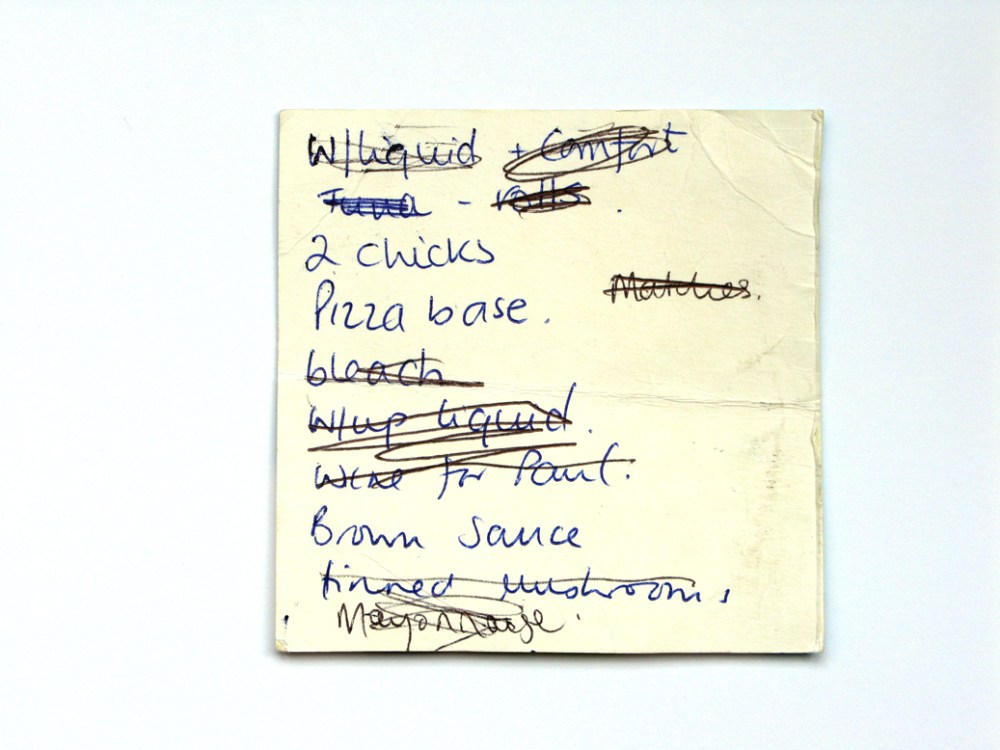 W/liquid + Comfort
Tuna - rolls.
2 chicks
Matches.
Pizza base.
bleach
W/up liquid.
Wine for Paul.
Brown Sauce
tinned mushrooms
Mayonnaise.